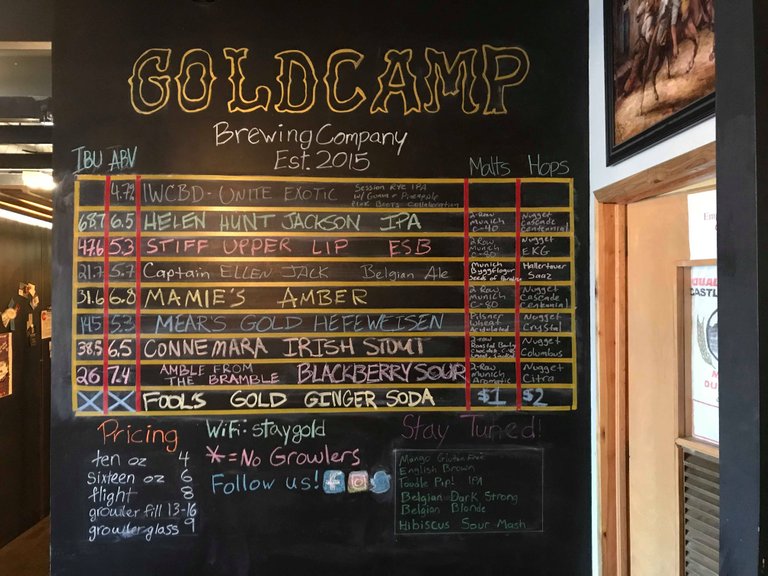 GOLDCAMP
Brewing Company
Est. 2015
IBU ABV Malts Hops
4.7% IWCBD - UNITE EXOTIC Session RYE IPA
w/ Guava & Pineapple
Collaboration
68.7 6.5 HELEN HUNT JACKSON IPA 2-Row Munich C-40 Nugget Cascade Centennial
47.6 5.3 STIFF UPPER LIP ESB 2-Row Munich Nugget EKG
21.7 5.7 Captain ELLEN JACK Belgian Ale Munich Hallertauer Saaz
31.6 6.8 MAMIE'S AMBER 2-Row Munich C-80 Nugget Cascade Centennial
14.5 5.3 MEAR'S GOLD HEFEWEISEN Pilsner Wheat Acidulated Nugget Crystal
38.5 6.5 CONNEMARA IRISH STOUT 2-row Roasted Barley Nugget Columbus
26 7.4 AMBLE FROM THE BRAMBLE BLACKBERRY SOUR 2-Row Munich Aromatic Nugget Citra
X X FOOLS GOLD GINGER SODA $1 $2
Pricing
ten oz 4
sixteen oz 6
flight 8
growler fill 13-16
growler glass 9
WiFi: staygold
* = No Growlers
Follow us!
Stay Tuned!
Mango Gluten Free
English Brown
Toodle Pip! IPA
Belgian Dark Strong
Belgian Blonde
Hibiscus Sour Mash